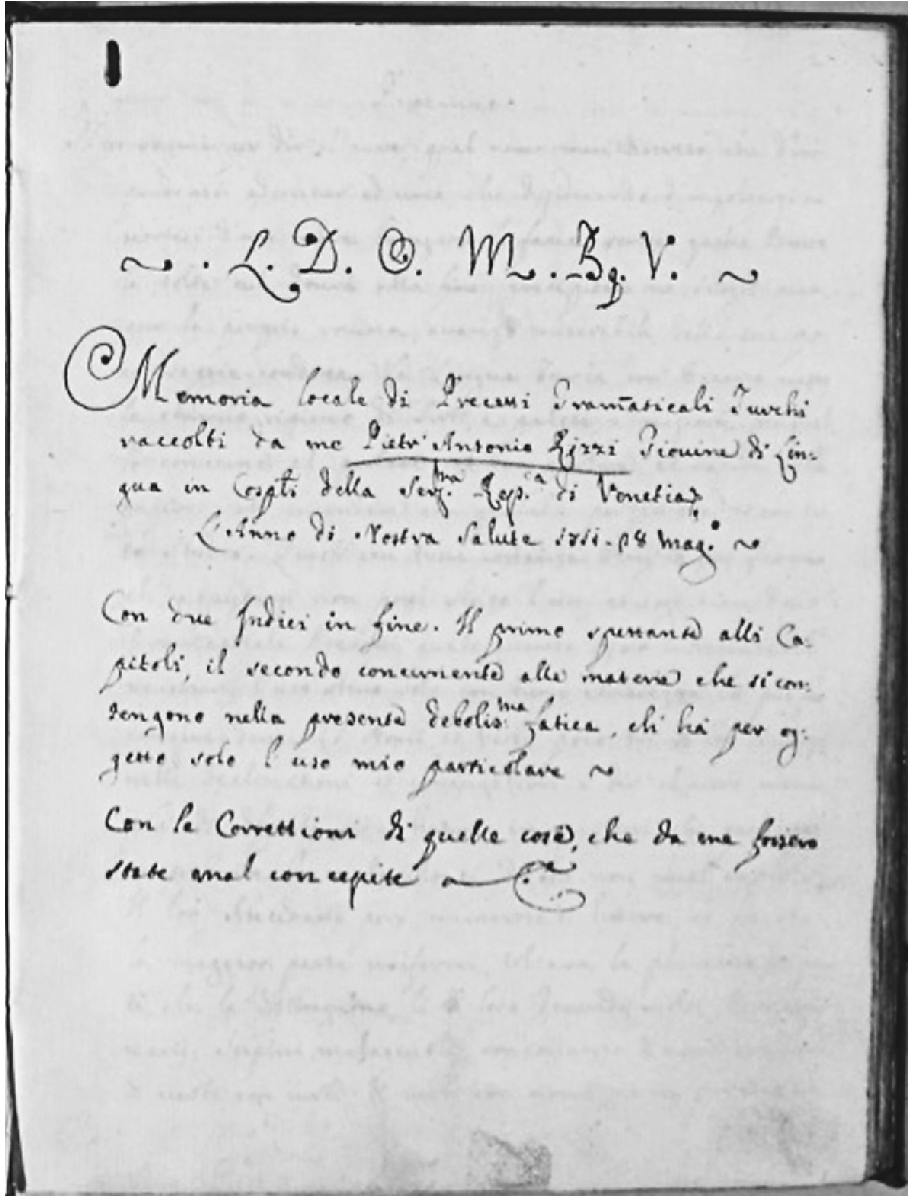 ~ . L. D. O. M. Bq. V. ~
Memoria locale di Precetti Grammaticali Turchi
raccolti da me Pietr' Antonio Rizzi Giouine di Lin-
gua in Cospli della Ser.ma Rep.ca di Venetia
L'Anno di Nostra Salute 28 Mag.o ~
Con due Indici in fine. Il primo spettante alli Ca-
pitoli, il secondo concernente alle materie che si con-
tengono nella presente debolis.ma fatica, chi hà per og-
getto solo l'uso mio particolare ~
Con le Correttioni di quelle cose, che da me fossero
state mal concepite